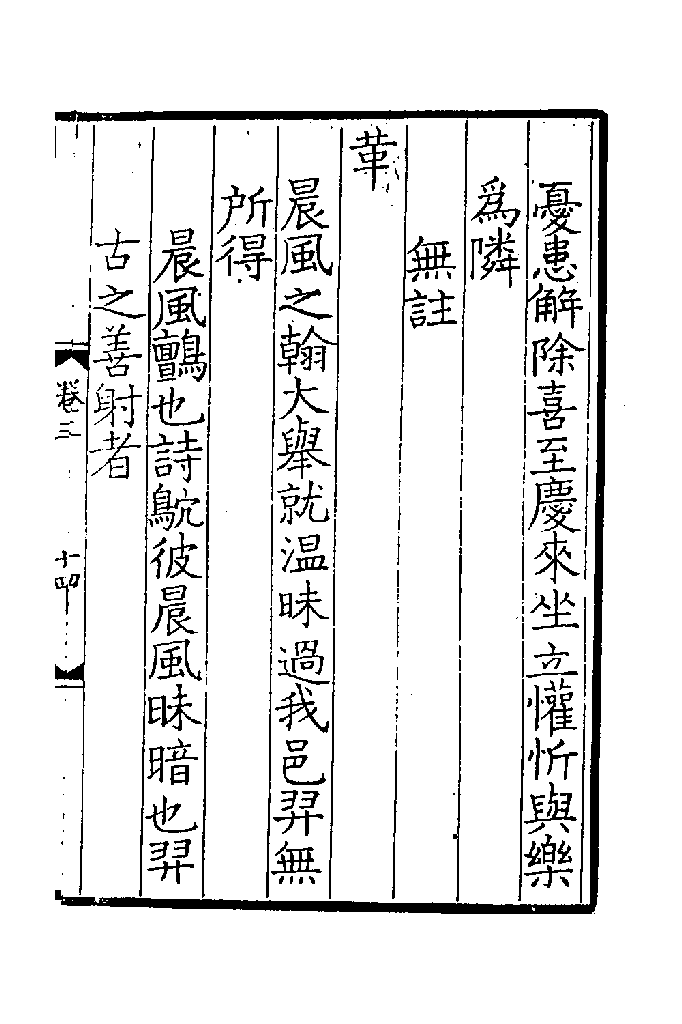 憂患解除喜至慶來坐立懽忻與樂
爲隣
無註
革
晨風之翰大舉就温昧過我邑羿無
所得
晨風鸇也詩鴥彼晨風昧暗也羿
古之善射者
卷三
十四